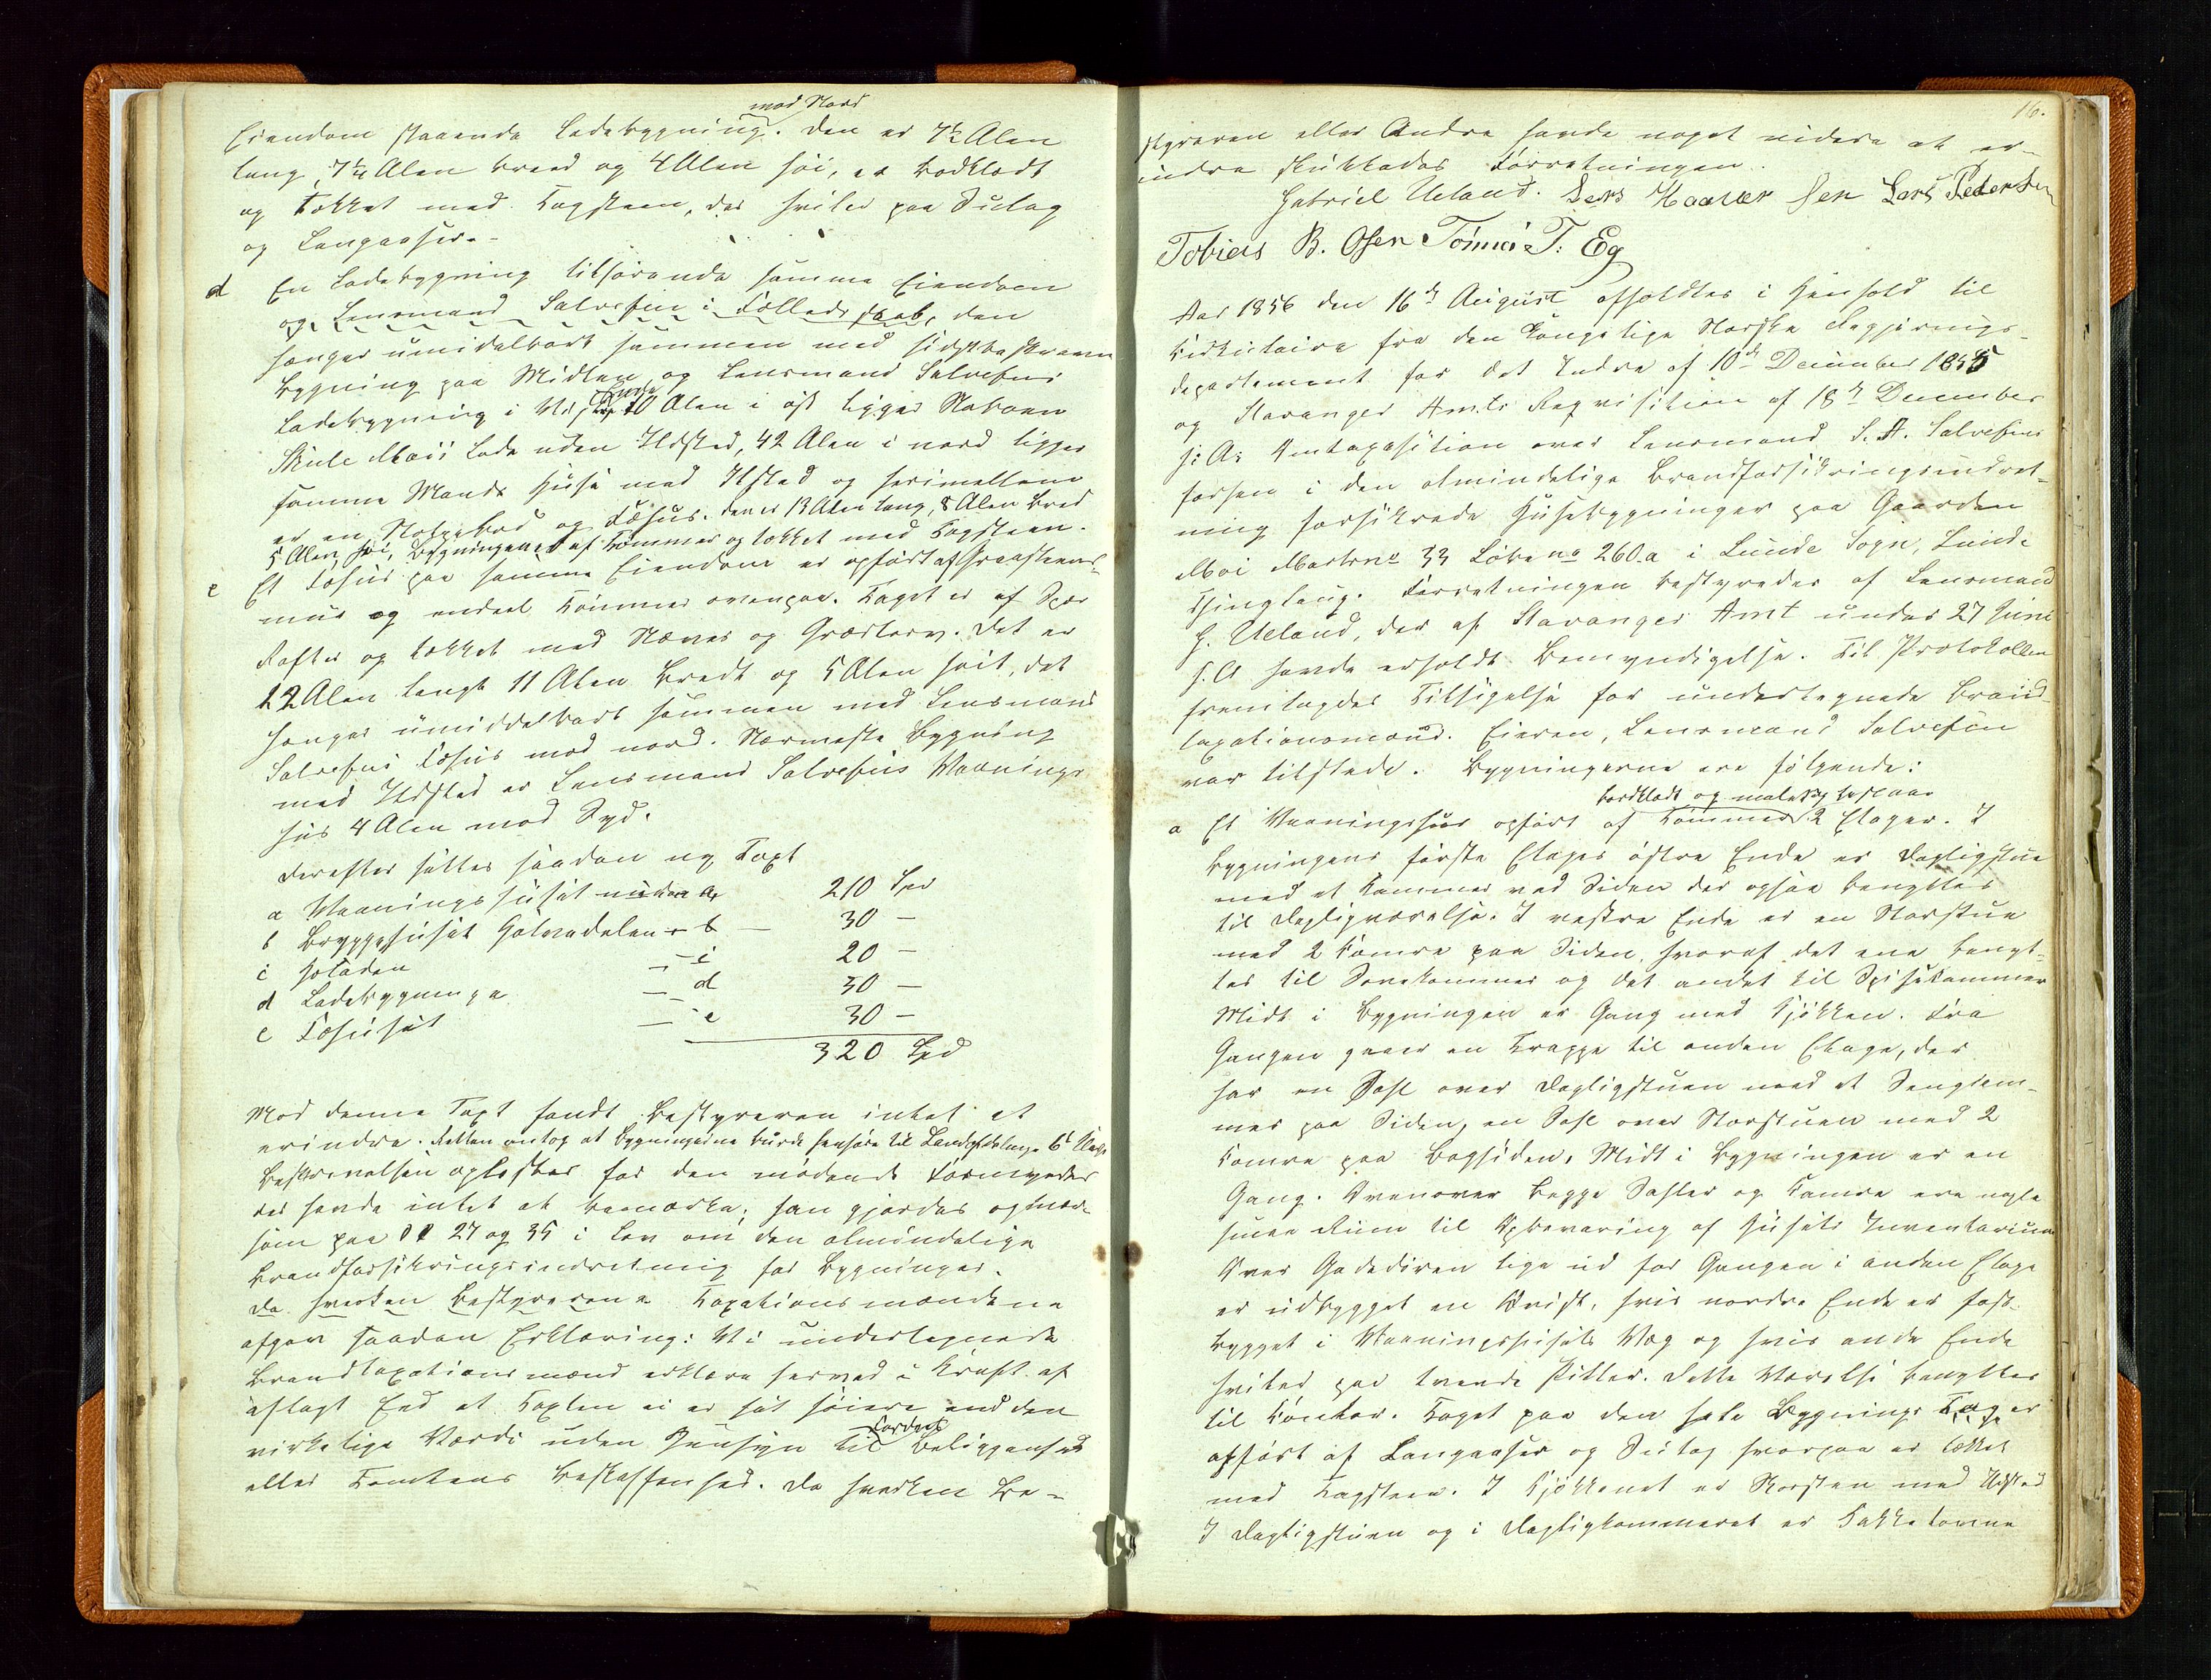 mod Nord
Eiendom staaende Ladebygning. Den er 7½ Alen
lang, 7¼ Alen bred og 4 Alen høi, er bordklædt
og tækket med Tagsteen, der hviler paa Sutag
og Langaaser.
d En Ladebygning tilhørende samme Eiendom
og Lensmand Salvesen i Fælledsskab, den
hænger umidelbart sammen med sidstbeskrevne
Bygning paa Midten og Lensmand Salvesens
Ladebygning i Vestre Ende, 10 Alen i øst ligger Naboen
Skule Mois Lade uden Ildsted, 42 Alen i nord ligger
samme Mands Huse med Ildsted og herimellem
er en og Fæhus. Den er 13 Alen lang, 8 Alen bred
5 Alen høi, Bygningen er af Tømmer og tækket med Tagsteen.
e Et Fæhus paa samme Eiendom er opført af Graasteens-
muur og endeel Tømmer ovenpaa. Taget er af Spær
Rafter og tækket med Næver og Græstorv. Det er
12 Alen langt 11 Alen bredt og 5 Alen høit, det
hænger umiddelbart sammen med Lensmand
Salvesens Fæhus mod nord. Nærmeste Bygning
med Ildsted er Lensmand Salvesens Vaanings
hus 4 Alen mod Syd.
Derefter sattes saadan ny Taxt
a Vaaningshuset under a 210 Spd
b Bryggehuset Halvedelen - b - 30 -
c Høladen - c 20 -
d Ladebygningen - d 30 -
e Fæhuset - e 30 -
320 Spd
Mod denne Taxt fandt Bestyreren intet at
erindre. Retten antog at Bygningerne burde henføre til Landets 6te Klasse
Beskrivelsen oplæstes for den mødende
der havde intet at bemærke; han gjordes opmærk
som paa §§ 27 og 35 i Lov om den almindelige
Brandforsikringsindretning for Bygninger.
Da hverken Bestyreren Taxationsmændene
afgav saadan Erklæring: Vi undertegnede
Brandtaxationsmænd erklære herved i Kraft af
aflagt Eed at Taxten ei er sat høiere end den
virkelige Værdi uden Hensyn til Jordens Beliggenhed
eller Tomtens Beskaffenhed. Da hverken Be-
16.
styreren eller Andre havde noget videre at er-
indre sluttedes Forretningen.
Gabriel Ueland. Lars Haaver Sen Lars Pedersen
Tobias B. Osen Tønnes T. Eg
Aar 1856 den 16de August afholdtes i Henhold til
Cirkulaire fra den Kongelige Norske Regjerings-
departement for det Indre af 10de December 1855
og Stavanger Amts Reqvisition af 18de December
s: A: Omtaxation over Lensmand S. A. Salvesens
forhen i den almindelige Brandforsikringsindret-
ning forsikrede Husebygninger paa Gaarden
Moi Matr no 33 Løbe no 260.a i Lunde Sogn, Lunde
Thinglaug. Forretningen bestyredes af Lensmand
G. Ueland, der af Stavanger Amt under 27 Juni
s. A havde erholdt Bemyndigelse. Til Protokollen
fremlagdes Tilsigelse for undertegnede Brand
taxationsmænd. Eieren, Lensmand Salvesen
var tilstede. Bygningerne ere følgende:
bordklædt og malet og bestaar
a Et Vaaningshuus opført af Tømmer 2 Etager. I
Bygningens første Etages østre Ende er Dagligstue
med et Kammer ved Siden der ogsaa benyttes
til Dagligværelse. I vestre Ende er en Storstue
med 2 Kamre paa Siden, hvoraf det ene benyt-
tes til Sovekammer og det andet til Spisekammer
Midt i Bygningen er Gang med Kjøkken. Fra
Gangen gaaer en Trappe til anden Etage, der
har en Sahl over Dagligstuen med et Sengkam-
mer paa Siden, en Sahl over Storstuen med 2
Kamre paa Bagsiden. Midt i Bygningen er en
Gang. Ovenover begge Sahler og Kamre ere nogle
smaa Rum til Opbevaring af Husets Inventarium
Over Gadedøren lige ud for Gangen i anden Etage
er udbygget en Kvist, hvis nordre Ende er fast-
bygget i Vaaningshusets Væg og hvis andre Ende
hviler paa tvende Piller. Dette Værelse benyttes
til Contor. Taget paa den hele Bygnings Tag er
opført af Langaaser og Sutag hvorpaa er tækket
med Tagsteen. I Kjøkkenet er Skorsten med Ildsted
I Dagligstuen og i Dagligkammeret er Kakkelovne